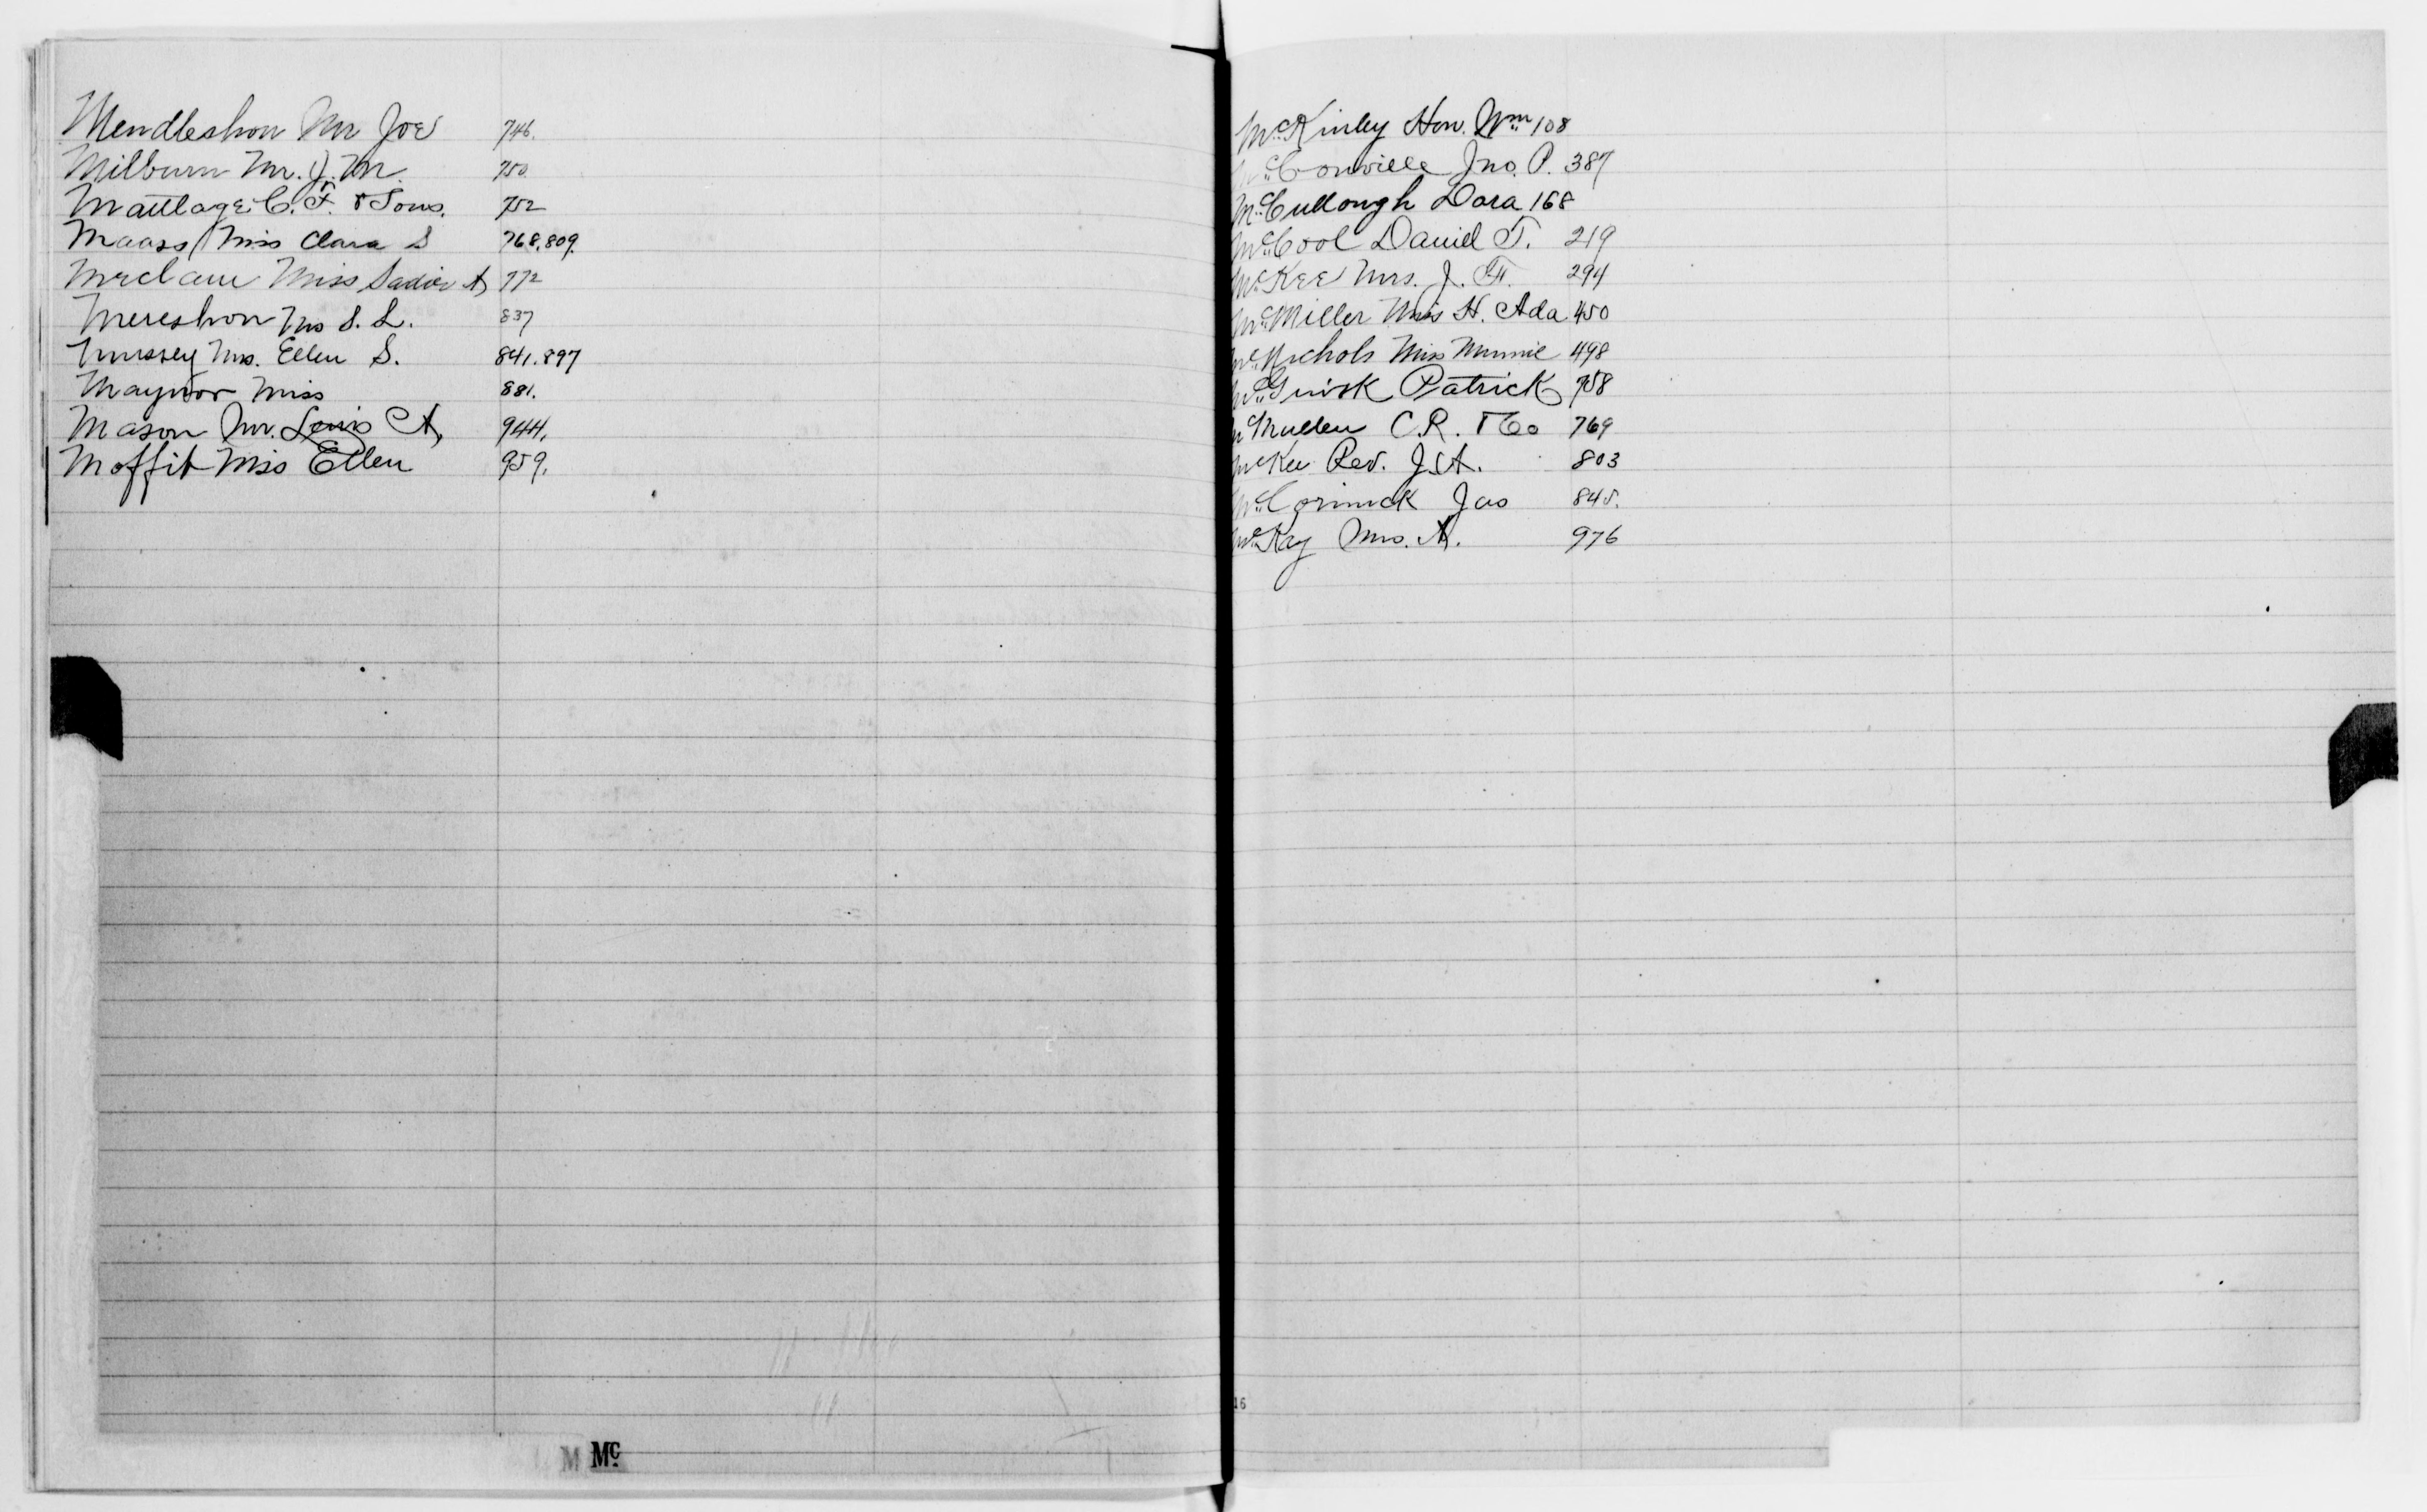 Mendleshon Mr Joe 746.
Milburn Mr. J. M. 750
Mattlage C. F. & Sons. 752
Maass Miss Clara S 768.809.
Miss Sadie A 772
Mereshon Mrs S. L. 837
Mussey Mrs. Ellen S. 841.897
Maynor Miss 881.
Mason Mr. Louis A. 944.
Moffit Miss Ellen 959.
M Mc
McKinley Hon. Wm 108
McConville Jno. P. 387
McCullough Dora 168
McCool Daniel T. 219
McKee Mrs. J. F. 294
McMiller Miss H. Ada 450
McNichols Miss Minnie 498
Patrick 758
McMullen C.R. & Co 769
McKee Rev. J. A. 803
McCormick Jas 845.
McKay Mrs. A. 976
16